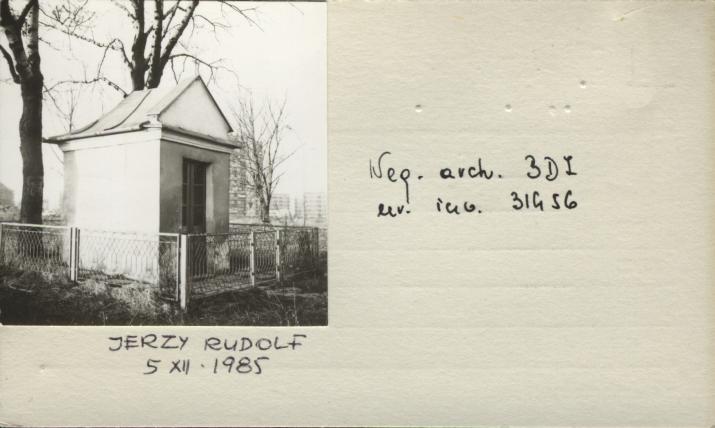 Neg. arch. 3DZ
nr. inw. 31456
JERZY RUDOLF
5 XII. 1985